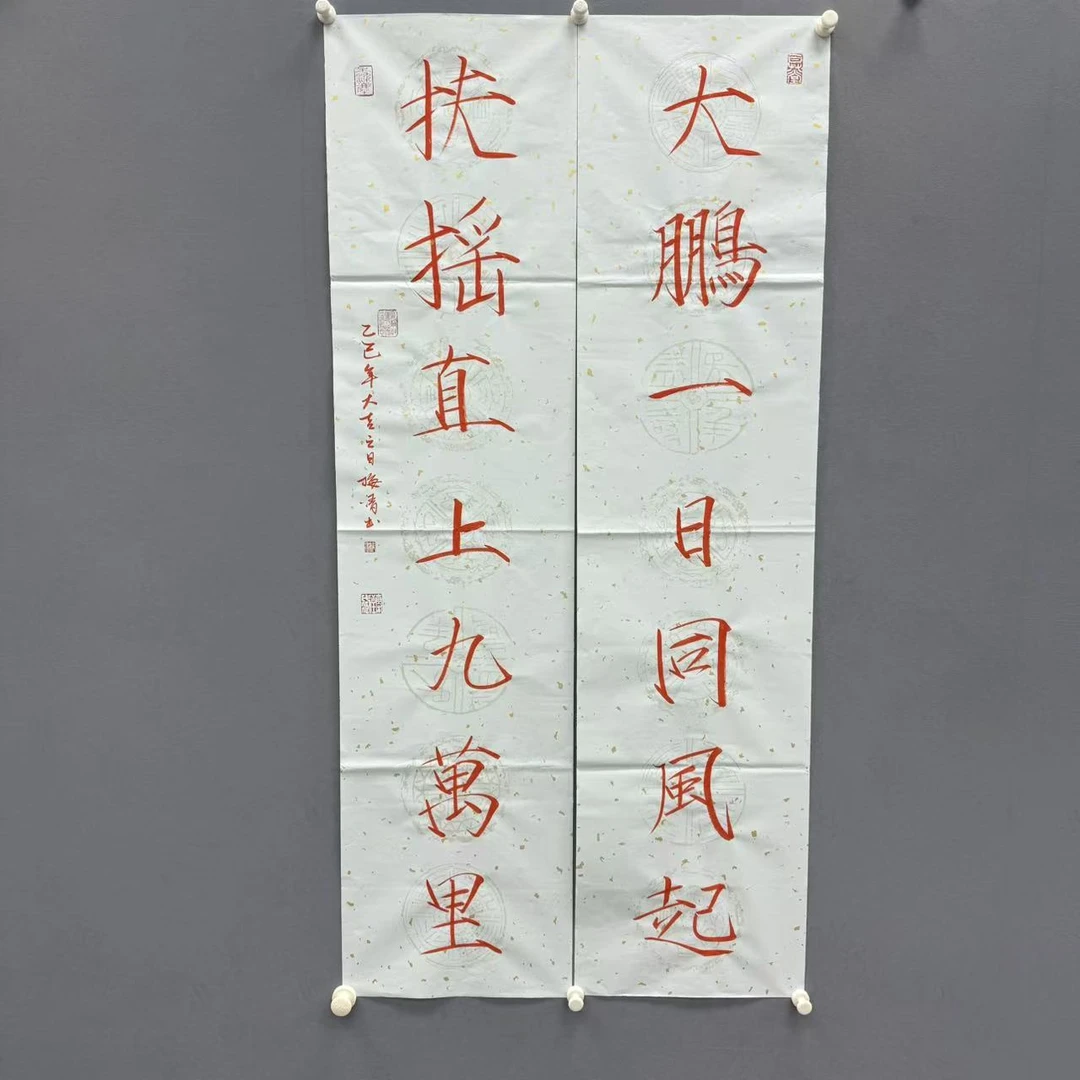 大鵬一日同風起
扶摇直上九萬里
乙巳年大吉之日梅青书